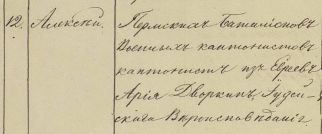 12. Алексей. Пермскихъ Баталіоновъ
Военныхъ кантонистовъ
кантонистъ изъ Евреевъ
Арія Дворкинъ Іудей-
скаго Вѣроисповѣданія